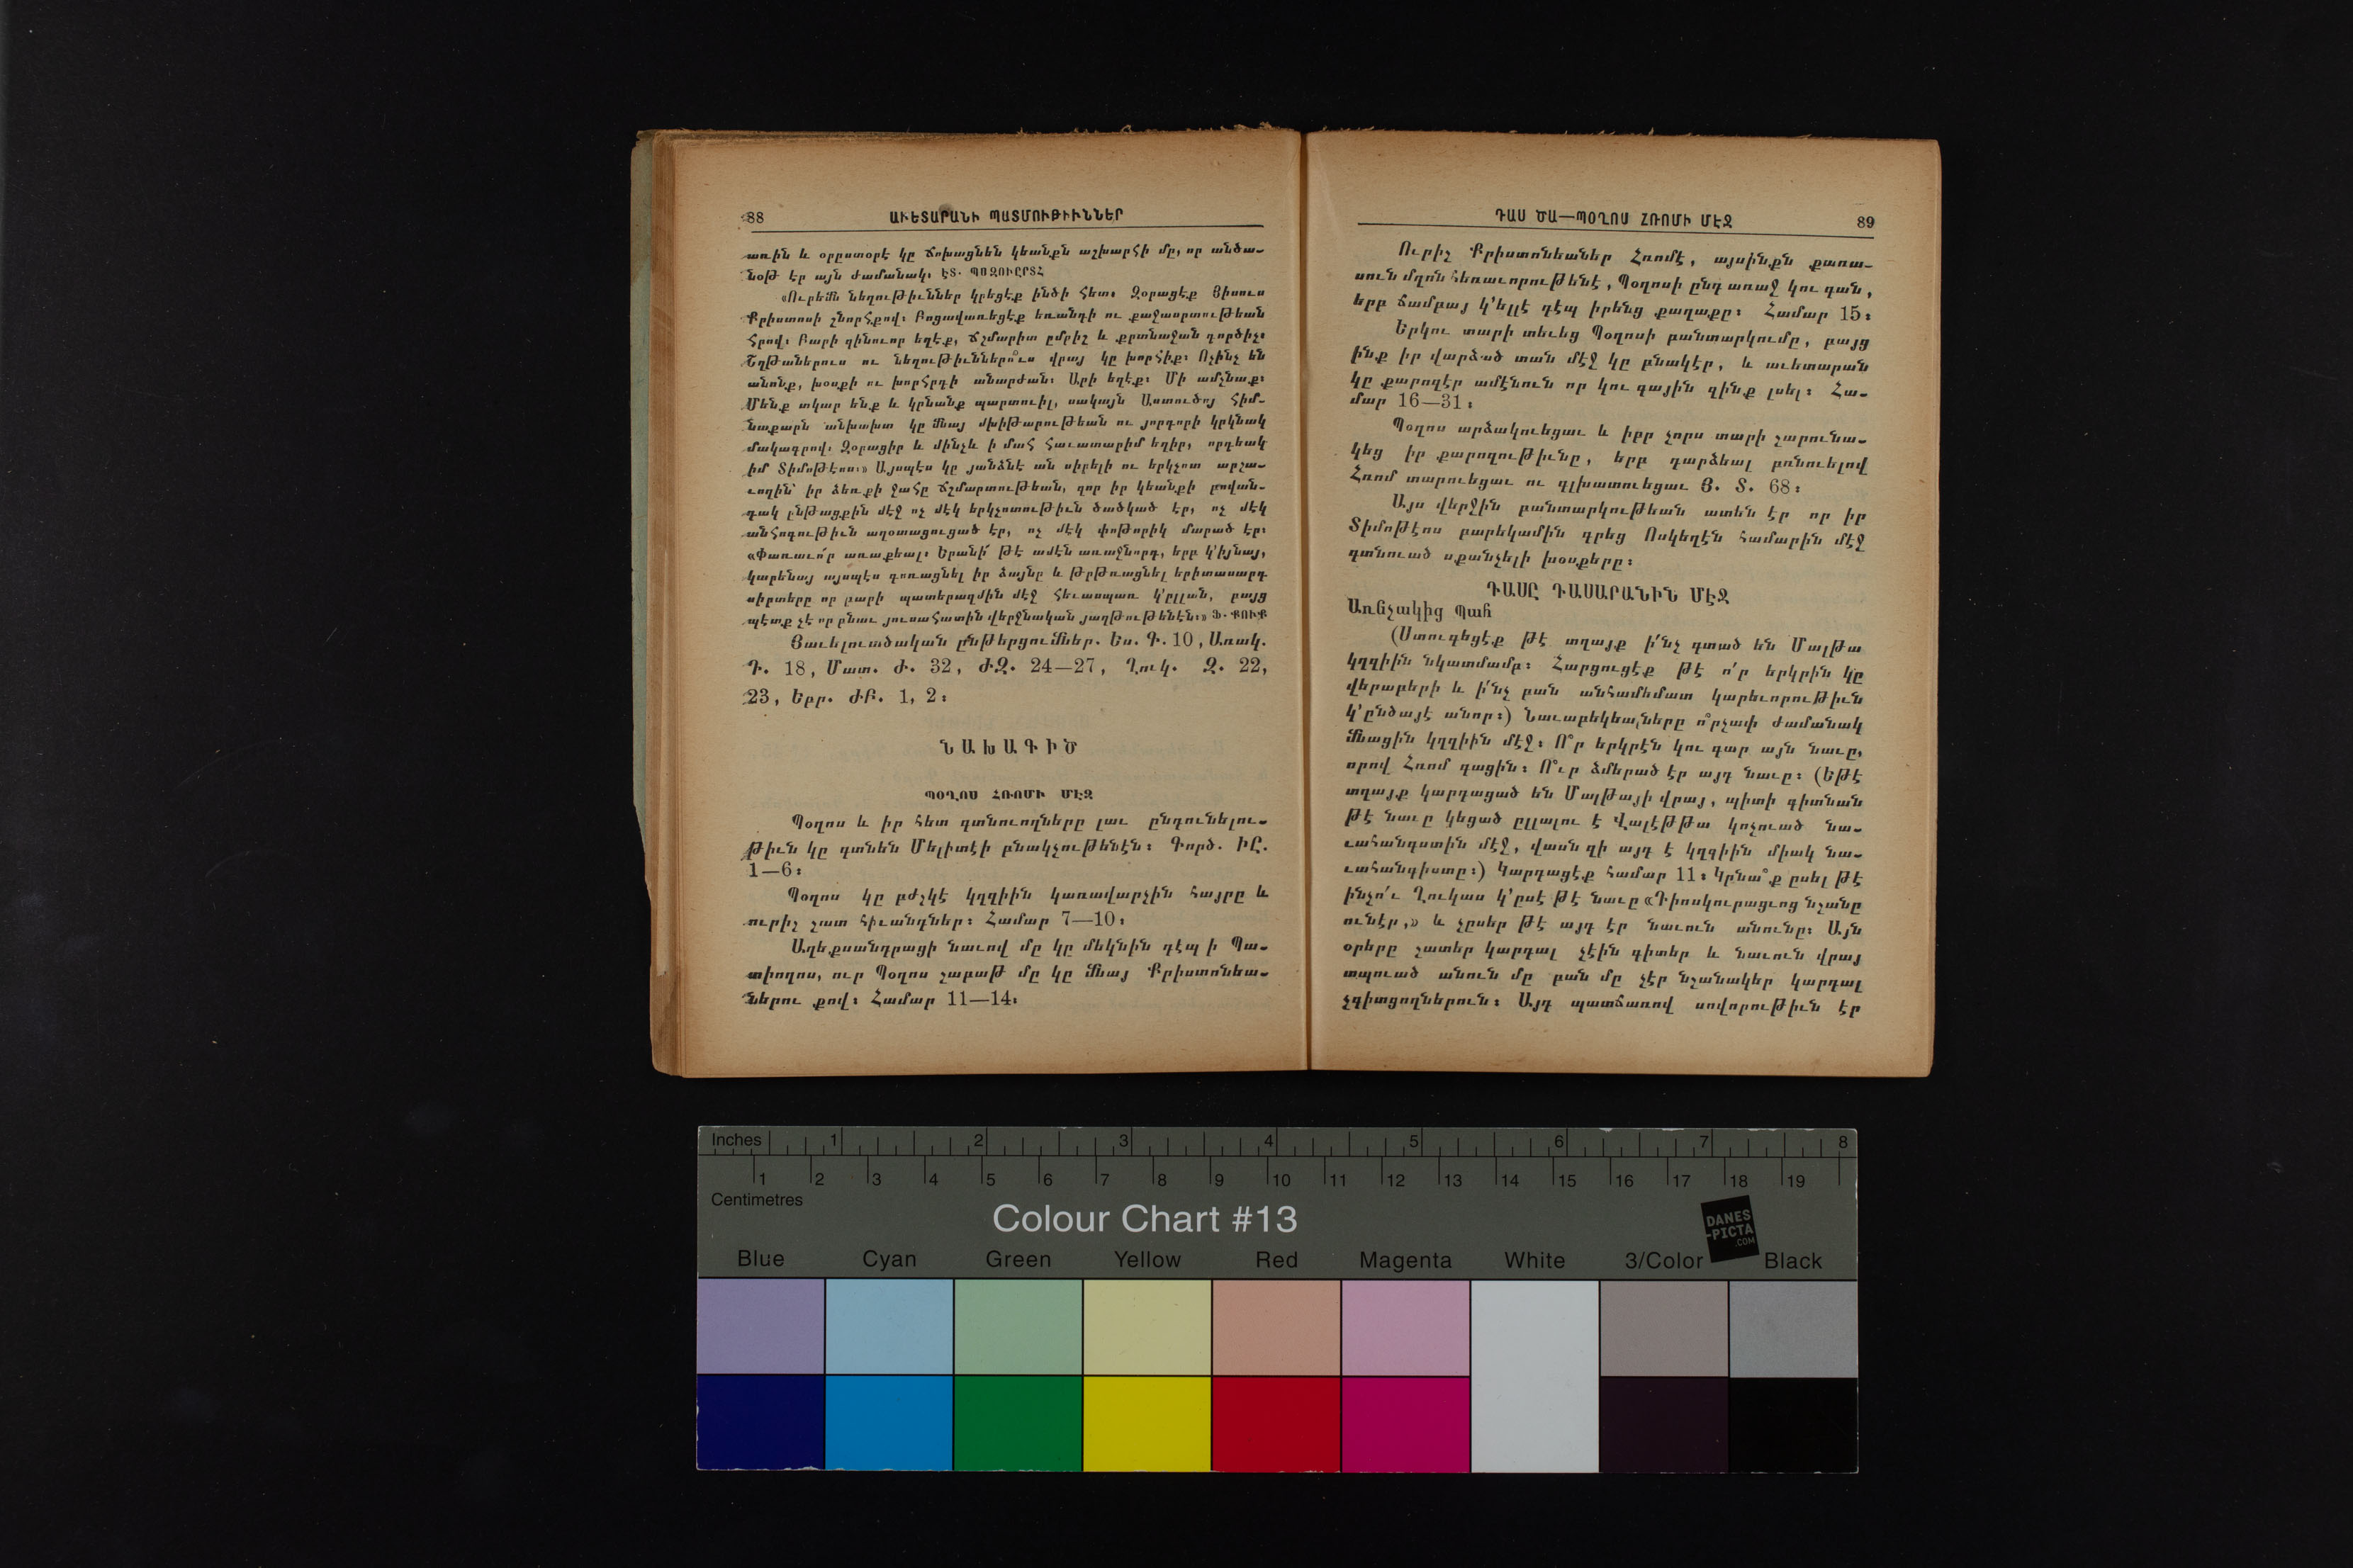 88 ԱՒԵՏԱՐԱՆԻ ՊԱՏՄՈՒԹԻՒՆՆԵՐ
առին և օրըստօրէ կը ճոխացնեն կեանքն աշխարհի մը, որ անծա-
նօթ էր այն ժամանակ։ ԷՏ. ՊՈԶՈՒԸՐՏՀ
«Ուրեմն նեղութիւններ կրեցէք ինծի հետ։ Զօրացէք Յիսուս
Քրիստոսի շնորհքով։ Բոցավառեցէք եռանդի ու քաջասրտութեան
հրով։ Բարի զինուոր եղէք, ճշմարիտ ըմբիշ և քրտնաջան գործիչ։
Շղթաներուս ու նեղութիւններո՞ւս վրայ կը խորհիք։ Ոչինչ են
անոնք, խօսքի ու խորհրդի անարժան։ Արի եղէք։ Մի ամչնաք։
Մենք տկար ենք և կրնանք պարտուիլ, սակայն Աստուծոյ հիմ-
նաքարն անխախտ կը մնայ մխիթարութեան ու յորդորի կրկնակ
մակագրով։ Զօրացիր և մինչև ի մահ հաւատարիմ եղիր, որդեակ
իմ Տիմոթէոս։» Այսպէս կը յանձնէ ան սիրելի ու երկչոտ արշա-
ւողին՝ իր ձեռքի ջահը ճշմարտութեան, զոր իր կեանքի բովան-
դակ ընթացքին մէջ ոչ մէկ երկչոտութիւն ծածկած էր, ոչ մէկ
անհոգութիւն աղօտացուցած էր, ոչ մէկ փոթորիկ մարած էր։
«Փառաւո՛ր առաքեալ։ Երանի՜ թէ ամէն առաջնորդ, երբ կ՚իյնայ,
կարենայ այսպէս գոռացնել իր ձայնը և թրթռացնել երիտասարդ
սիրտերը որ բարի պատերազմին մէջ հեւասպառ կ՚ըլլան, բայց
պէտք չէ որ բնաւ յուսահատին վերջնական յաղթութենէն։» Ֆ. ՔՈՒՔ
Յաւելուածական ընթերցումներ. Ես. Գ. 10, Առակ.
Դ. 18, Մատ. Ժ. 32, ԺԶ. 24—27, Ղուկ. Զ. 22,
23, Եբր. ԺԲ. 1, 2։
ՆԱԽԱԳԻԾ
ՊՕՂՈՍ ՀՌՈՄԻ ՄԷՋ
Պօղոս և իր հետ գտնուողները լաւ ընդունելու-
թիւն կը գտնեն Մելիտէի բնակչութենէն։ Գործ. ԻԸ.
1—6։
Պօղոս կը բժշկէ կղզիին կառավարչին հայրը և
ուրիշ շատ հիւանդներ։ Համար 7—10։
Աղեքսանդրացի նաւով մը կը մեկնին դէպ ի Պա-
տիողոս, ուր Պօղոս շաբաթ մը կը մնայ Քրիստոնեա-
ներու քով։ Համար 11—14։
ԴԱՍ ԾԱ—ՊՕՂՈՍ ՀՌՈՄԻ ՄԷՋ 89
Ուրիշ Քրիստոնեաներ Հռոմէ, այսինքն քառա-
սուն մղոն հեռաւորութենէ, Պօղոսի ընդ առաջ կու գան,
երբ ճամբայ կ՚ելլէ դէպ իրենց քաղաքը։ Համար 15։
Երկու տարի տեւեց Պօղոսի բանտարկումը, բայց
ինք իր վարձած տան մէջ կը բնակէր, և աւետարան
կը քարոզէր ամէնուն որ կու գային զինք լսել։ Հա-
մար 16—31։
Պօղոս արձակուեցաւ և իբր չորս տարի շարունա-
կեց իր քարոզութիւնը, երբ դարձեալ բռնուելով
Հռոմ տարուեցաւ ու գլխատուեցաւ Յ. Տ. 68։
Այս վերջին բանտարկութեան ատեն էր որ իր
Տիմոթէոս բարեկամին գրեց Ոսկեղէն համարին մէջ
գտնուած սքանչելի խօսքերը։
ԴԱՍԸ ԴԱՍԱՐԱՆԻՆ ՄԷՋ
Առնչակից Պահ
(Ստուգեցէք թէ տղայք ի՛նչ գտած են Մալթա
կղզիին նկատմամբ։ Հարցուցէք թէ ո՛ր երկրին կը
վերաբերի և ի՛նչ բան անհամեմատ կարեւորութիւն
կ՚ընծայէ անոր։) Նաւաբեկեալները ո՞րչափ ժամանակ
մնացին կղզիին մէջ։ Ո՞ր երկրէն կու գար այն նաւը,
որով Հռոմ գացին։ Ո՞ւր ձմերած էր այդ նաւը։ (Եթէ
տղայք կարդացած են Մալթայի վրայ, պիտի գիտնան
թէ նաւը կեցած ըլլալու է Վալէթթա կոչուած նա-
ւահանգստին մէջ, վասն զի այդ է կղզիին միակ նա-
ւահանգիստը։) Կարդացէք համար 11։ Կրնա՞ք ըսել թէ
ինչո՛ւ Ղուկաս կ՚ըսէ թէ նաւը «Դիոսկուրացւոց նշանը
ունէր,» և չըսեր թէ այդ էր նաւուն անունը։ Այն
օրերը շատեր կարդալ չէին գիտեր և նաւուն վրայ
տպուած անուն մը բան մը չէր նշանակեր կարդալ
չգիտցողներուն։ Այդ պատճառով սովորութիւն էր
Inches 1 2 3 4 5 6 7 8
1 2 3 4 5 6 7 8 9 10 11 12 13 14 15 16 17 18 19
Centimetres
Colour Chart #13
DANES
-PICTA
.COM
Blue Cyan Green Yellow Red Magenta White 3/Color Black